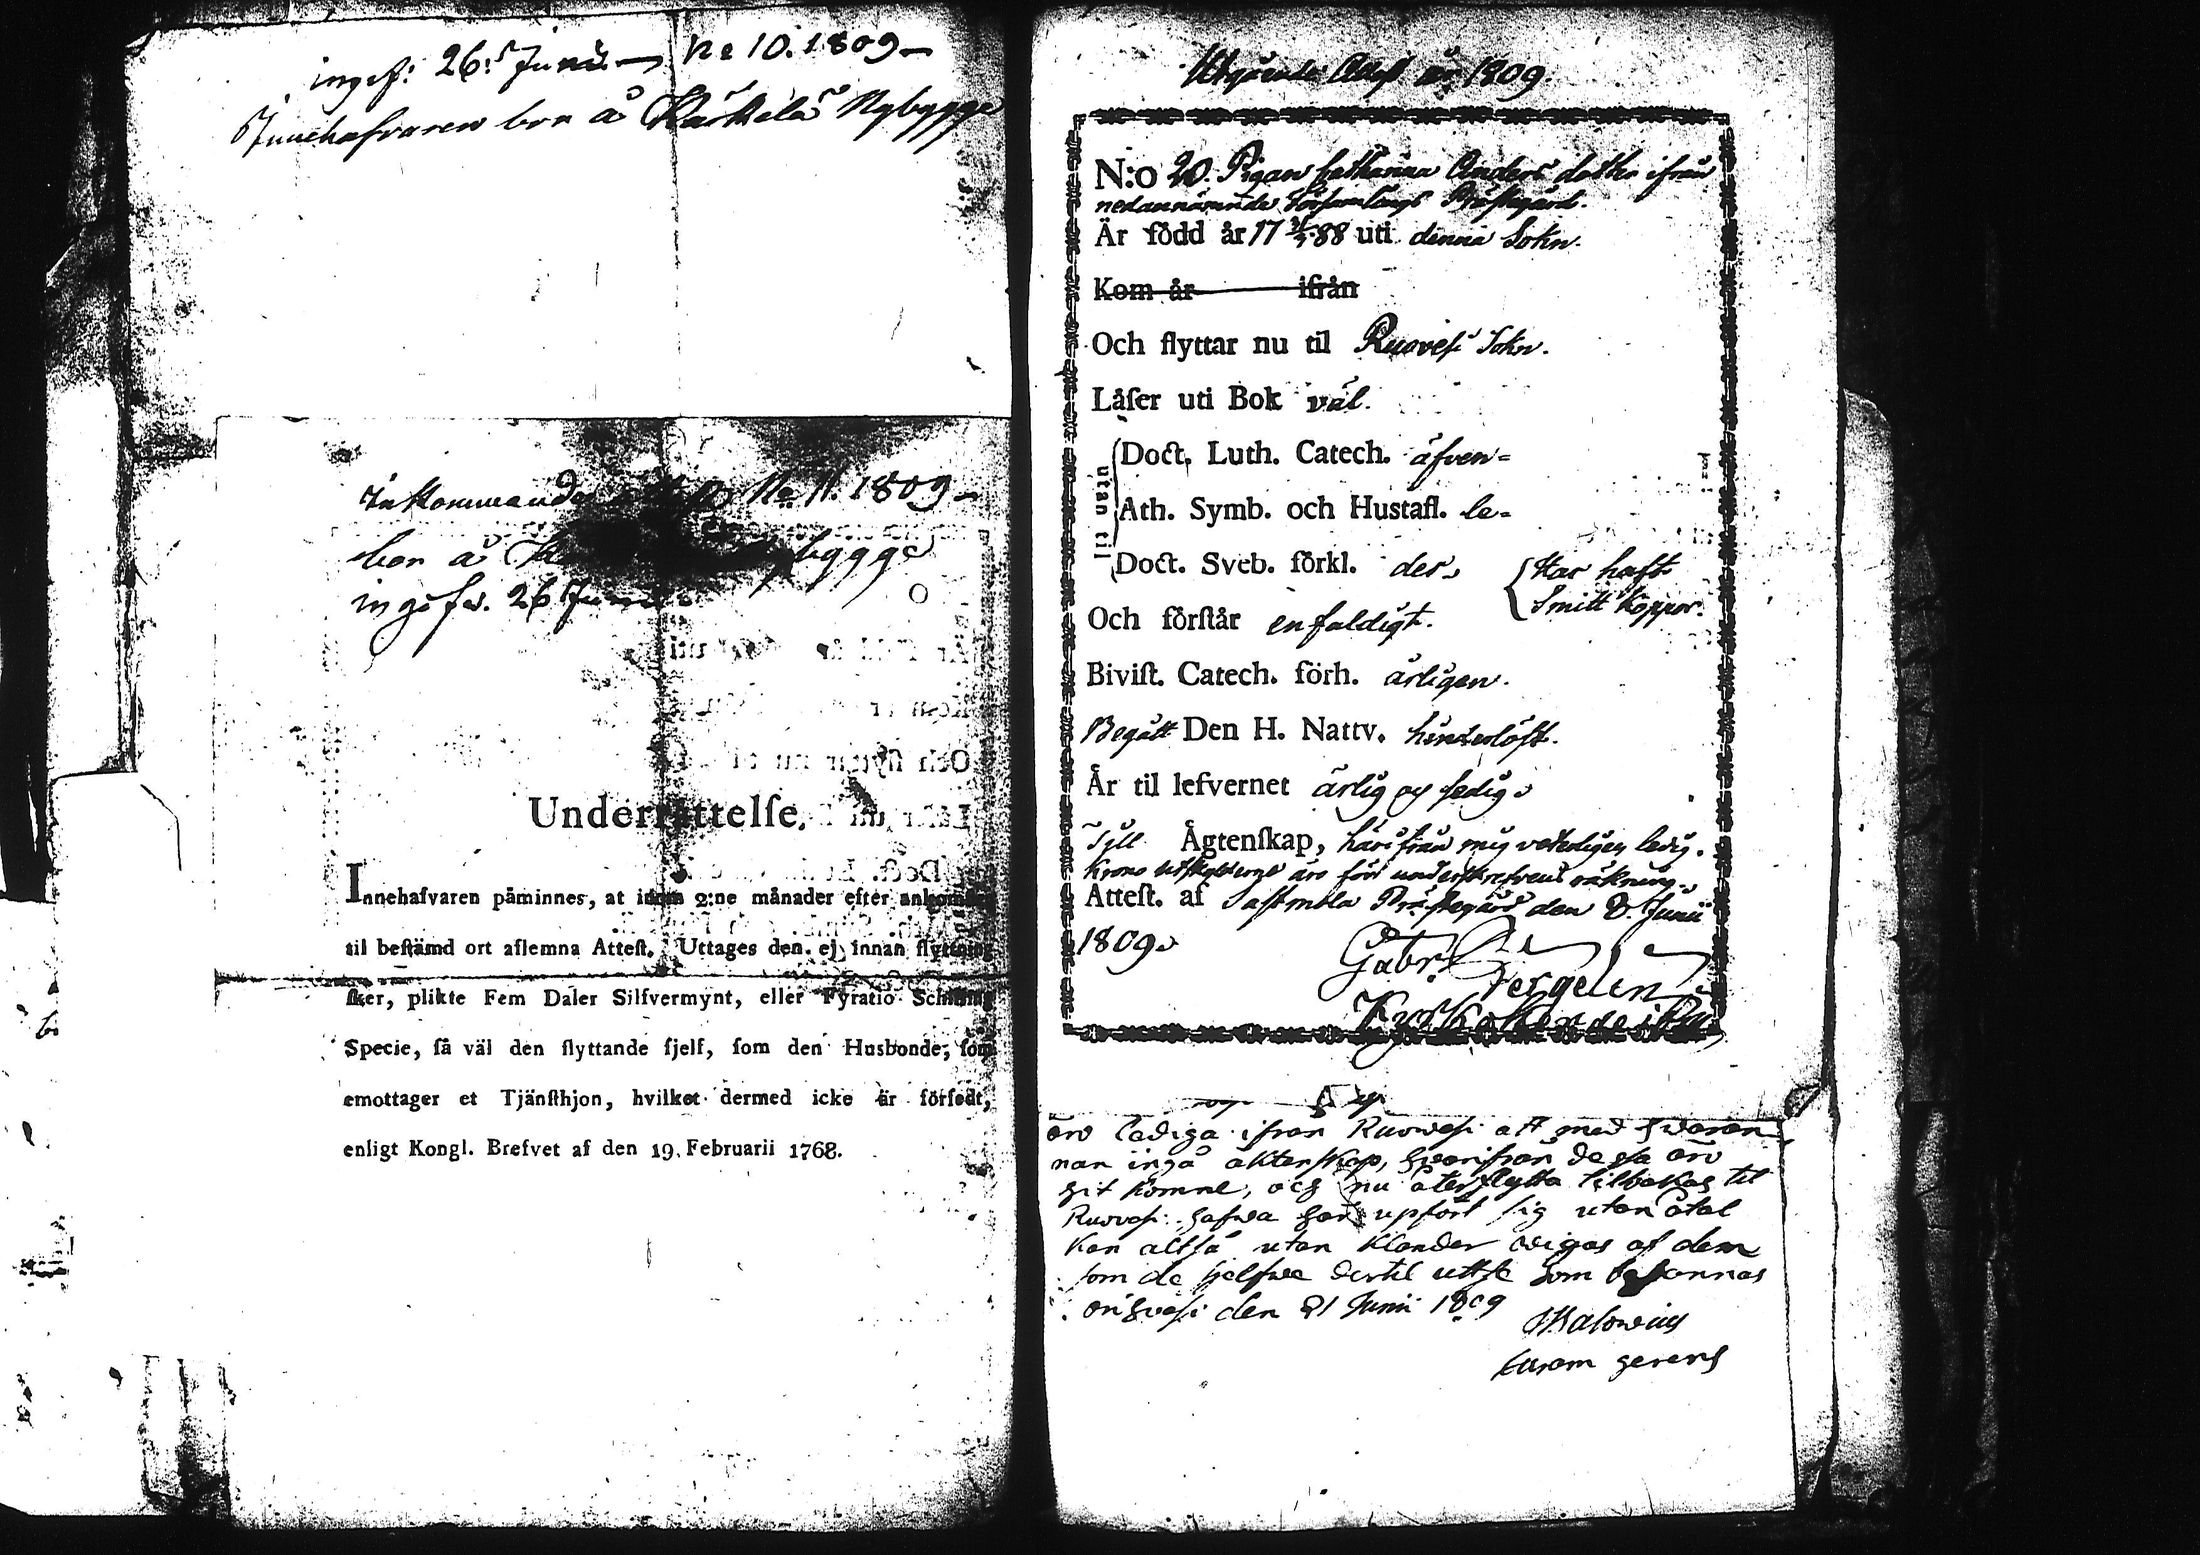 ingif: 26. Junii — No 10. 1809 —
Innehafvaren bor å Kärkelä Nybygge
Inkommande No 11. 1809 —
bor å bygge
ingifv. 26 Junii
Underrättelſe.
Innehafvaren påminnes, at inom 2:ne månader efter ankomſten
til beſtämd ort aflemna Atteſt. Uttages den ej innan flyttning
ſker, plikte Fem Daler Silfvermynt, eller Fyratio Schilling
Specie, ſå väl den flyttande ſjelf, ſom den Husbonde, ſom
emottager et Tjänſthjon, hvilket dermed icke är förſedt,
enligt Kongl. Brefvet af den 19. Februarii 1768.
Utgående Attest år 1809.
N:o 20. Pigan Catharina Anders dotter ifrån
nedannämnde Församlings Prästegård.
Är född år 17 88 uti denna Sokn.
Kom år ifrån
Och flyttar nu til Ruovesi Sokn.
Läſer uti Bok väl.
utan til
Doct. Luth. Catech. äfven=
Ath. Symb. och Hustafl. le=
Doct. Sveb. förkl. des,
Har haft
Smitt Koppor.
Och förſtår enfaldigt.
Biviſt. Catech. förh. årligen.
Begått Den H. Nattv. hinderlöst.
Är til lefvernet ärlig og sedig.
Till Ägtenſkap, härifrån mig veterligen ledig.
Krono utskylderne äro förr underskrefvens räkning.
Atteſt. af Sastmola Prästegård den 8. Junii
1809.
Gabr.
Kyrkoherde
äro lediga ifrån Ruowesi att med hwaran
nan ingå äktenskap, hwarifrån dessa äro
hit komne, och nu återflytta tilbakas til
Ruovesi. hafwa här upfört sig utan åtal
kan altså utan klander wigas af dem
som de helsst dertil utse som bekännas
Orihvesi den 21 Junii 1809